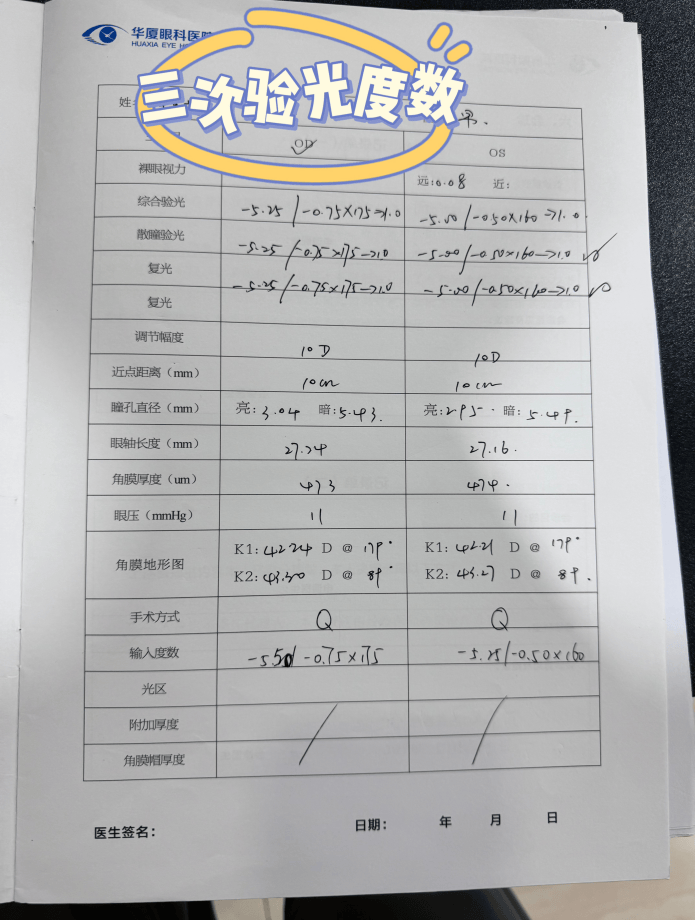 华厦眼科医院
HUAXIA EYE
三次验光度数
姓
男.
OD OS
裸眼视力 远:0.08 近:
综合验光 -5.25/-0.75×175→1.0 -5.00/-0.50×160→1.0.
散瞳验光 -5.25/-0.75×175→1.0 -5.00/-0.50×160→1.0
复光 -5.25/-0.75×175→1.0 -5.00/-0.50×160→1.0
复光
调节幅度 10D 10D
近点距离(mm) 10cm 10cm
瞳孔直径(mm) 亮:3.04 暗:5.43. 亮:2.95. 暗:5.49.
眼轴长度(mm) 27.24 27.16.
角膜厚度(um) 473 474.
眼压(mmHg) 11 11
角膜地形图 K1:42.24 D @ 179° K1:42.21 D @ 179°
K2:43.30 D @ 89° K2:43.27 D @ 89.
手术方式 Q Q
输入度数 -5.50/-0.75×175 -5.25/-0.50×160
光区
附加厚度 / /
角膜帽厚度
医生签名: 日期: 年 月 日